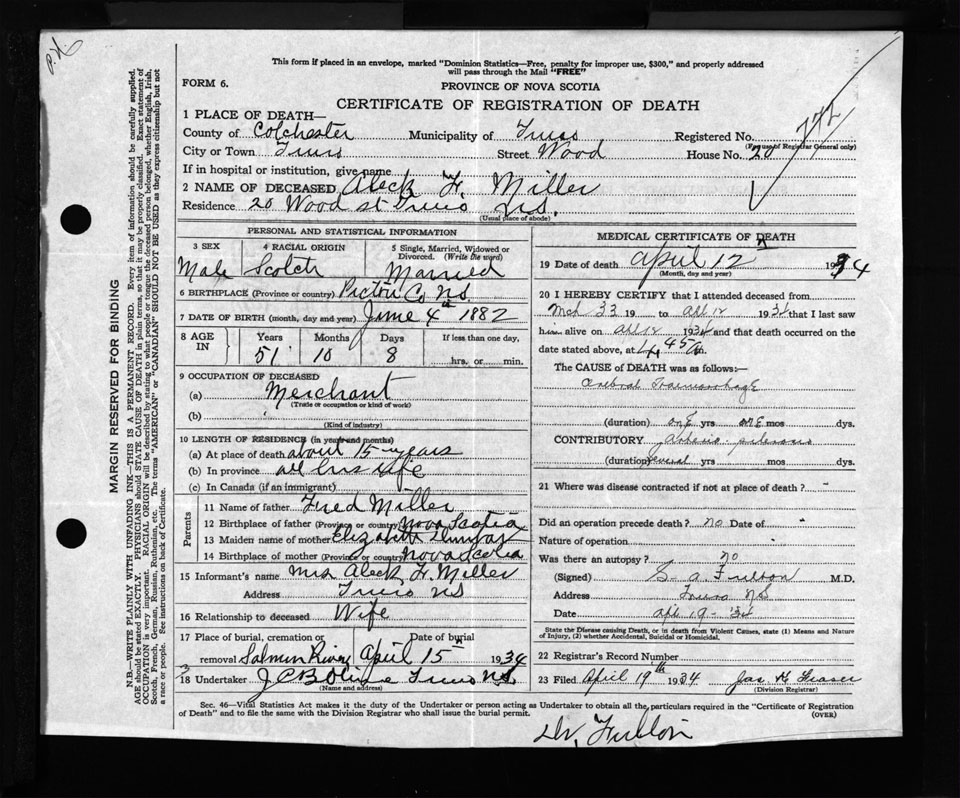 P.H.
This form if placed in an envelope, marked "Dominion Statistics—Free, penalty for improper use, $300," and properly addressed
will pass through the Mail "FREE"
FORM 6.
PROVINCE OF NOVA SCOTIA
CERTIFICATE OF REGISTRATION OF DEATH
MARGIN RESERVED FOR BINDING
N.B.—WRITE PLAINLY WITH UNFADING INK—THIS IS A PERMANENT RECORD. Every item of information should be carefully supplied.
AGE should be stated EXACTLY. PHYSICIANS should STATE CAUSE OF DEATH in plain terms, so that it may be properly classified. Exact statement of
OCCUPATION is very important. RACIAL ORIGIN will be described by stating to what people or tongue the deceased person belonged, whether English, Irish,
Scotch, French, German, Russian, Ruthenian, etc. The terms "AMERICAN" or "CANADIAN" SHOULD NOT BE USED as they express citizenship but not
a race or people. See instructions on back of Certificate.
1 PLACE OF DEATH—
County of Colchester Municipality of Truro Registered No. 742
(For use of Registrar General only)
City or Town Truro Street Wood House No. 20
If in hospital or institution, give name
2 NAME OF DECEASED Aleck F. Miller
Residence 20 Wood st Truro N.S.
(Usual place of abode)
PERSONAL AND STATISTICAL INFORMATION
3 SEX 4 RACIAL ORIGIN 5 Single, Married, Widowed or Divorced. (Write the word)
Male Scotch Married
6 BIRTHPLACE (Province or country) Pictou Co N.S.
7 DATE OF BIRTH (month, day and year) June 4th 1882
8 AGE IN Years Months Days If less than one day,
51 10 8 hrs. or min.
9 OCCUPATION OF DECEASED
(a) Merchant
(Trade or occupation or kind of work)
(b)
(Kind of industry)
10 LENGTH OF RESIDENCE (in years and months)
(a) At place of death about 15 years
(b) In province all his life
(c) In Canada (if an immigrant)
Parents
11 Name of father Fred Miller
12 Birthplace of father (Province or country) Nova Scotia
13 Maiden name of mother Elizabeth Dunbar
14 Birthplace of mother (Province or country) Nova Scotia
15 Informant's name Mrs Aleck F. Miller
Address Truro NS
16 Relationship to deceased Wife
17 Place of burial, cremation or Date of burial
removal Salmon River April 15th 1934
18 Undertaker Truro N.S.
(Name and address)
MEDICAL CERTIFICATE OF DEATH
19 Date of death April 12 1934
(Month, day and year)
20 I HEREBY CERTIFY that I attended deceased from
Mch 33 19 to Apl 12 1934 that I last saw
him alive on Apl 12 1934 and that death occurred on
date stated above, at 4.45 a m.
The CAUSE of DEATH was as follows:—
Cerebral Haemorrhage
(duration) one yrs one mos dys.
CONTRIBUTORY
(duration) several yrs mos dys.
21 Where was disease contracted if not at place of death?
Did an operation precede death? no Date of
Nature of operation
Was there an autopsy? no
(Signed) S. A. Fulton M.D.
Address Truro NS
Date Apl 19 - 34
State the Disease causing Death, or in death from Violent Causes, state (1) Means and Nature
of Injury, (2) whether Accidental, Suicidal or Homicidal.
22 Registrar's Record Number
23 Filed April 19th 1934 Jas H Fraser
(Division Registrar)
Sec. 46—Vital Statistics Act makes it the duty of the Undertaker or person acting as Undertaker to obtain all the particulars required in the "Certificate of Registration
of Death" and to file the same with the Division Registrar who shall issue the burial permit. (OVER)
Dr, Fulton